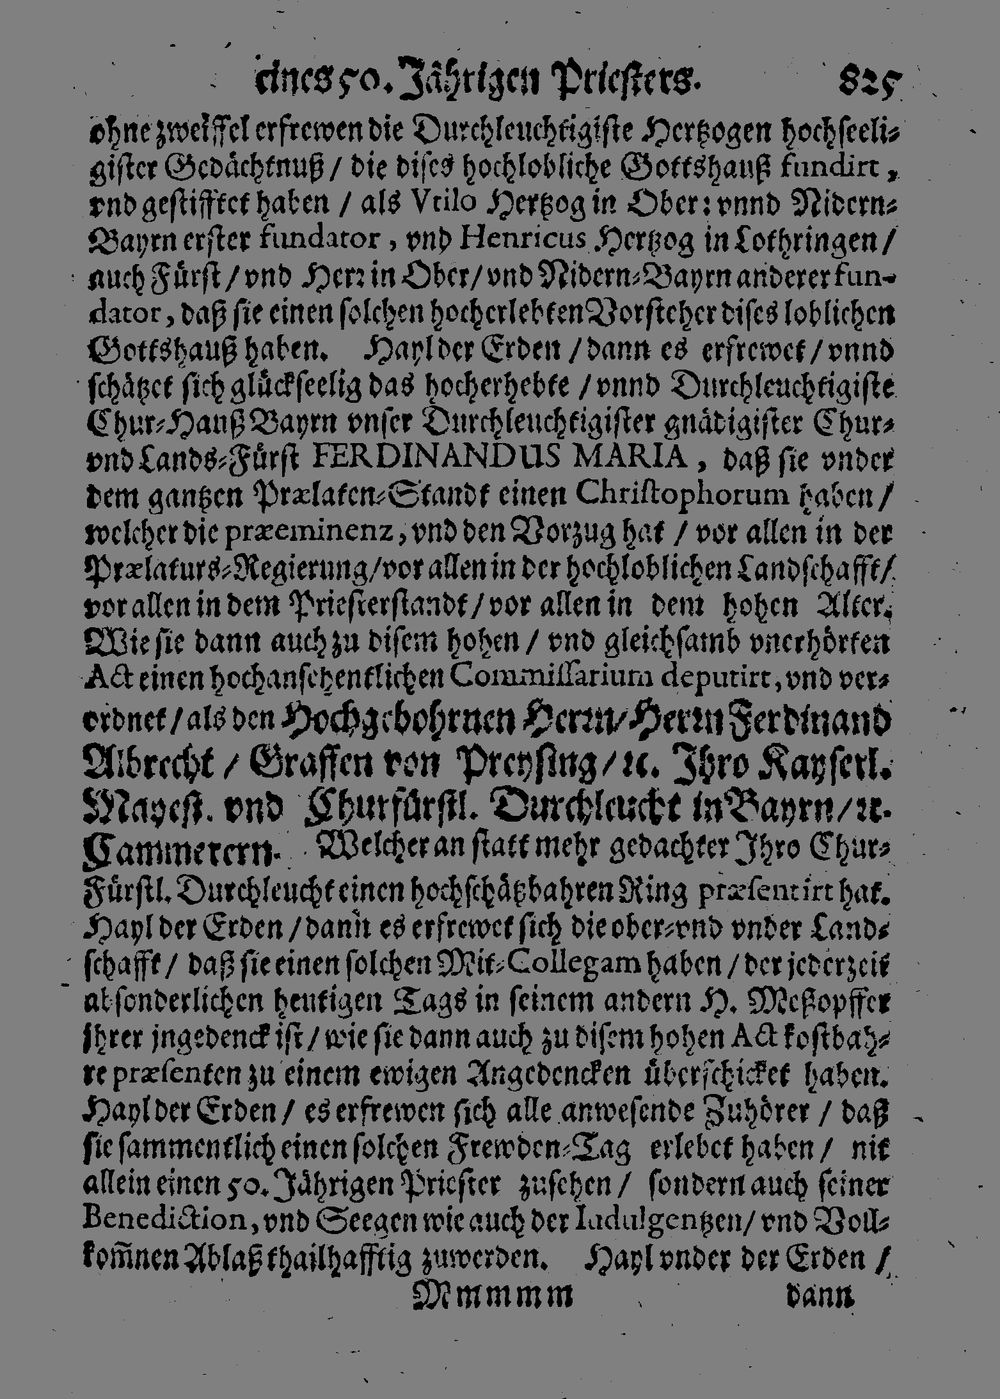 eines 50. Jährigen Priesters. 825
ohne zweiffel erfrewen die Durchleuchtigiste Hertzogen hochseeli-
gister Gedächtnuß / die dises hochlobliche Gottshauß fundirt,
vnd gestifftet haben / als Vtilo Hertzog in Ober: vnnd Nidern-
Bayrn erster fundator, vnd Henricus Hertzog in Lothringen /
auch Fürst / vnd Herr in Ober / vnd Nidern-Bayrn anderer fun-
dator, daß sie einen solchen hocherlebten Vorsteher dises loblichen
Gottshauß haben. Hayl der Erden / dann es erfrewet / vnnd
schätzet sich glückseelig das hocherhebte / vnnd Durchleuchtigiste
Chur-Hauß Bayrn vnser Durchleuchtigister gnädigister Chur-
vnd Lands-Fürst FERDINANDUS MARIA, daß sie vnder
dem gantzen Prælaten-Standt einen Christophorum haben /
welcher die præeminenz, vnd den Vorzug hat / vor allen in der
Prælaturs-Regierung / vor allen in der hochloblichen Landschafft /
vor allen in dem Priesterstandt / vor allen in dem hohen Alter.
Wie sie dann auch zu disem hohen / vnd gleichsamb vnerhörten
Act einen hochansehentlichen Commissarium deputirt, vnd ver-
ordnet / als den Hochgebohrnen Herrn / Herrn Ferdinand
Albrecht / Graffen von Preysing / ꝛc. Ihro Kayserl.
Mayest. vnd Churfürstl. Durchleucht in Bayrn / ꝛc.
Cammerern. Welcher an statt mehr gedachter Ihro Chur-
Fürstl. Durchleucht einen hochschätzbahren Ring præsentirt hat.
Hayl der Erden / dann es erfrewet sich die ober-vnd vnder Land-
schafft / daß sie einen solchen Mit-Collegam haben / der jederzeit
absonderlichen heutigen Tags in seinem andern H. Meßopffer
ihrer jngedenck ist / wie sie dann auch zu disem hohen Act kostbah-
re præsenten zu einem ewigen Angedencken überschicket haben.
Hayl der Erden / es erfrewen sich alle anwesende Zuhörer / daß
sie sammentlich einen solchen Frewden-Tag erlebet haben / nit
allein einen 50. Jährigen Priester zusehen / sondern auch seiner
Benediction, vnd Seegen wie auch der Indulgentzen / vnd Voll-
kom̃nen Ablaß thailhafftig zuwerden. Hayl vnder der Erden /
Mmmmm dann